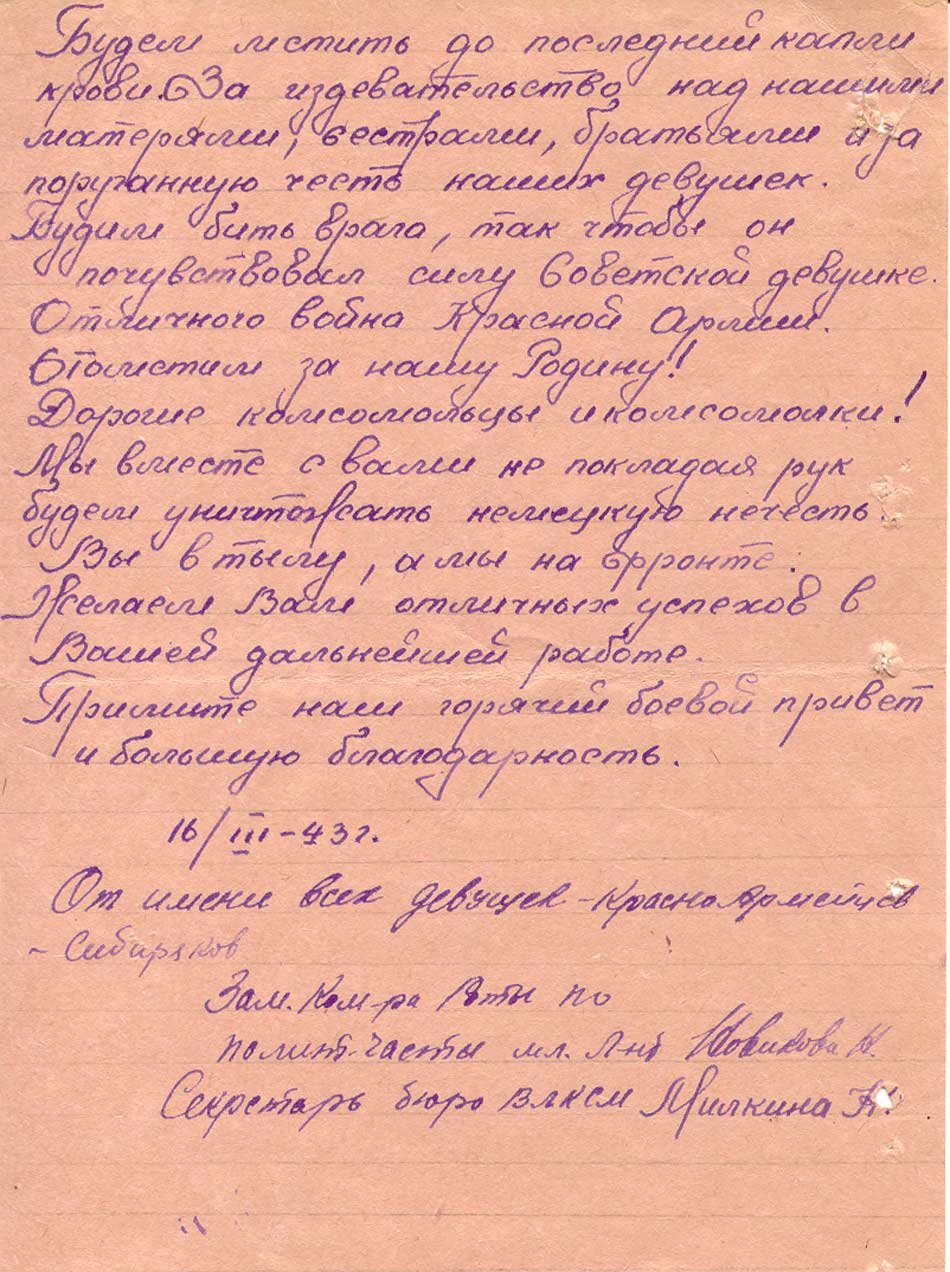 Будем мстить до последний капли
крови. За издевательство над нашими
матерями, сестрами, братьями и за
поруганную честь наших девушек.
Будим бить врага, так чтобы он
почувствовал силу Советской девушке.
Отличного война Красной Армии.
Отомстим за нашу Родину!
Дорогие комсомольцы и комсомолки!
Мы вместе с вами не покладая рук
будем уничтожать немецкую нечесть.
Вы в тылу, а мы на фронте.
Желаем Вам отличных успехов в
Вашей дальнейшей работе.
Примите наш горячий боевой привет
и большую благодарность.
16/III-43г.
От имени всех девушек-красноармейцев
- Сибиряков
Зам. Ком-ра Роты по
полит-часты мл. Л-нт Новикова К.
Секретарь бюро ВЛКСМ Милкина Н.